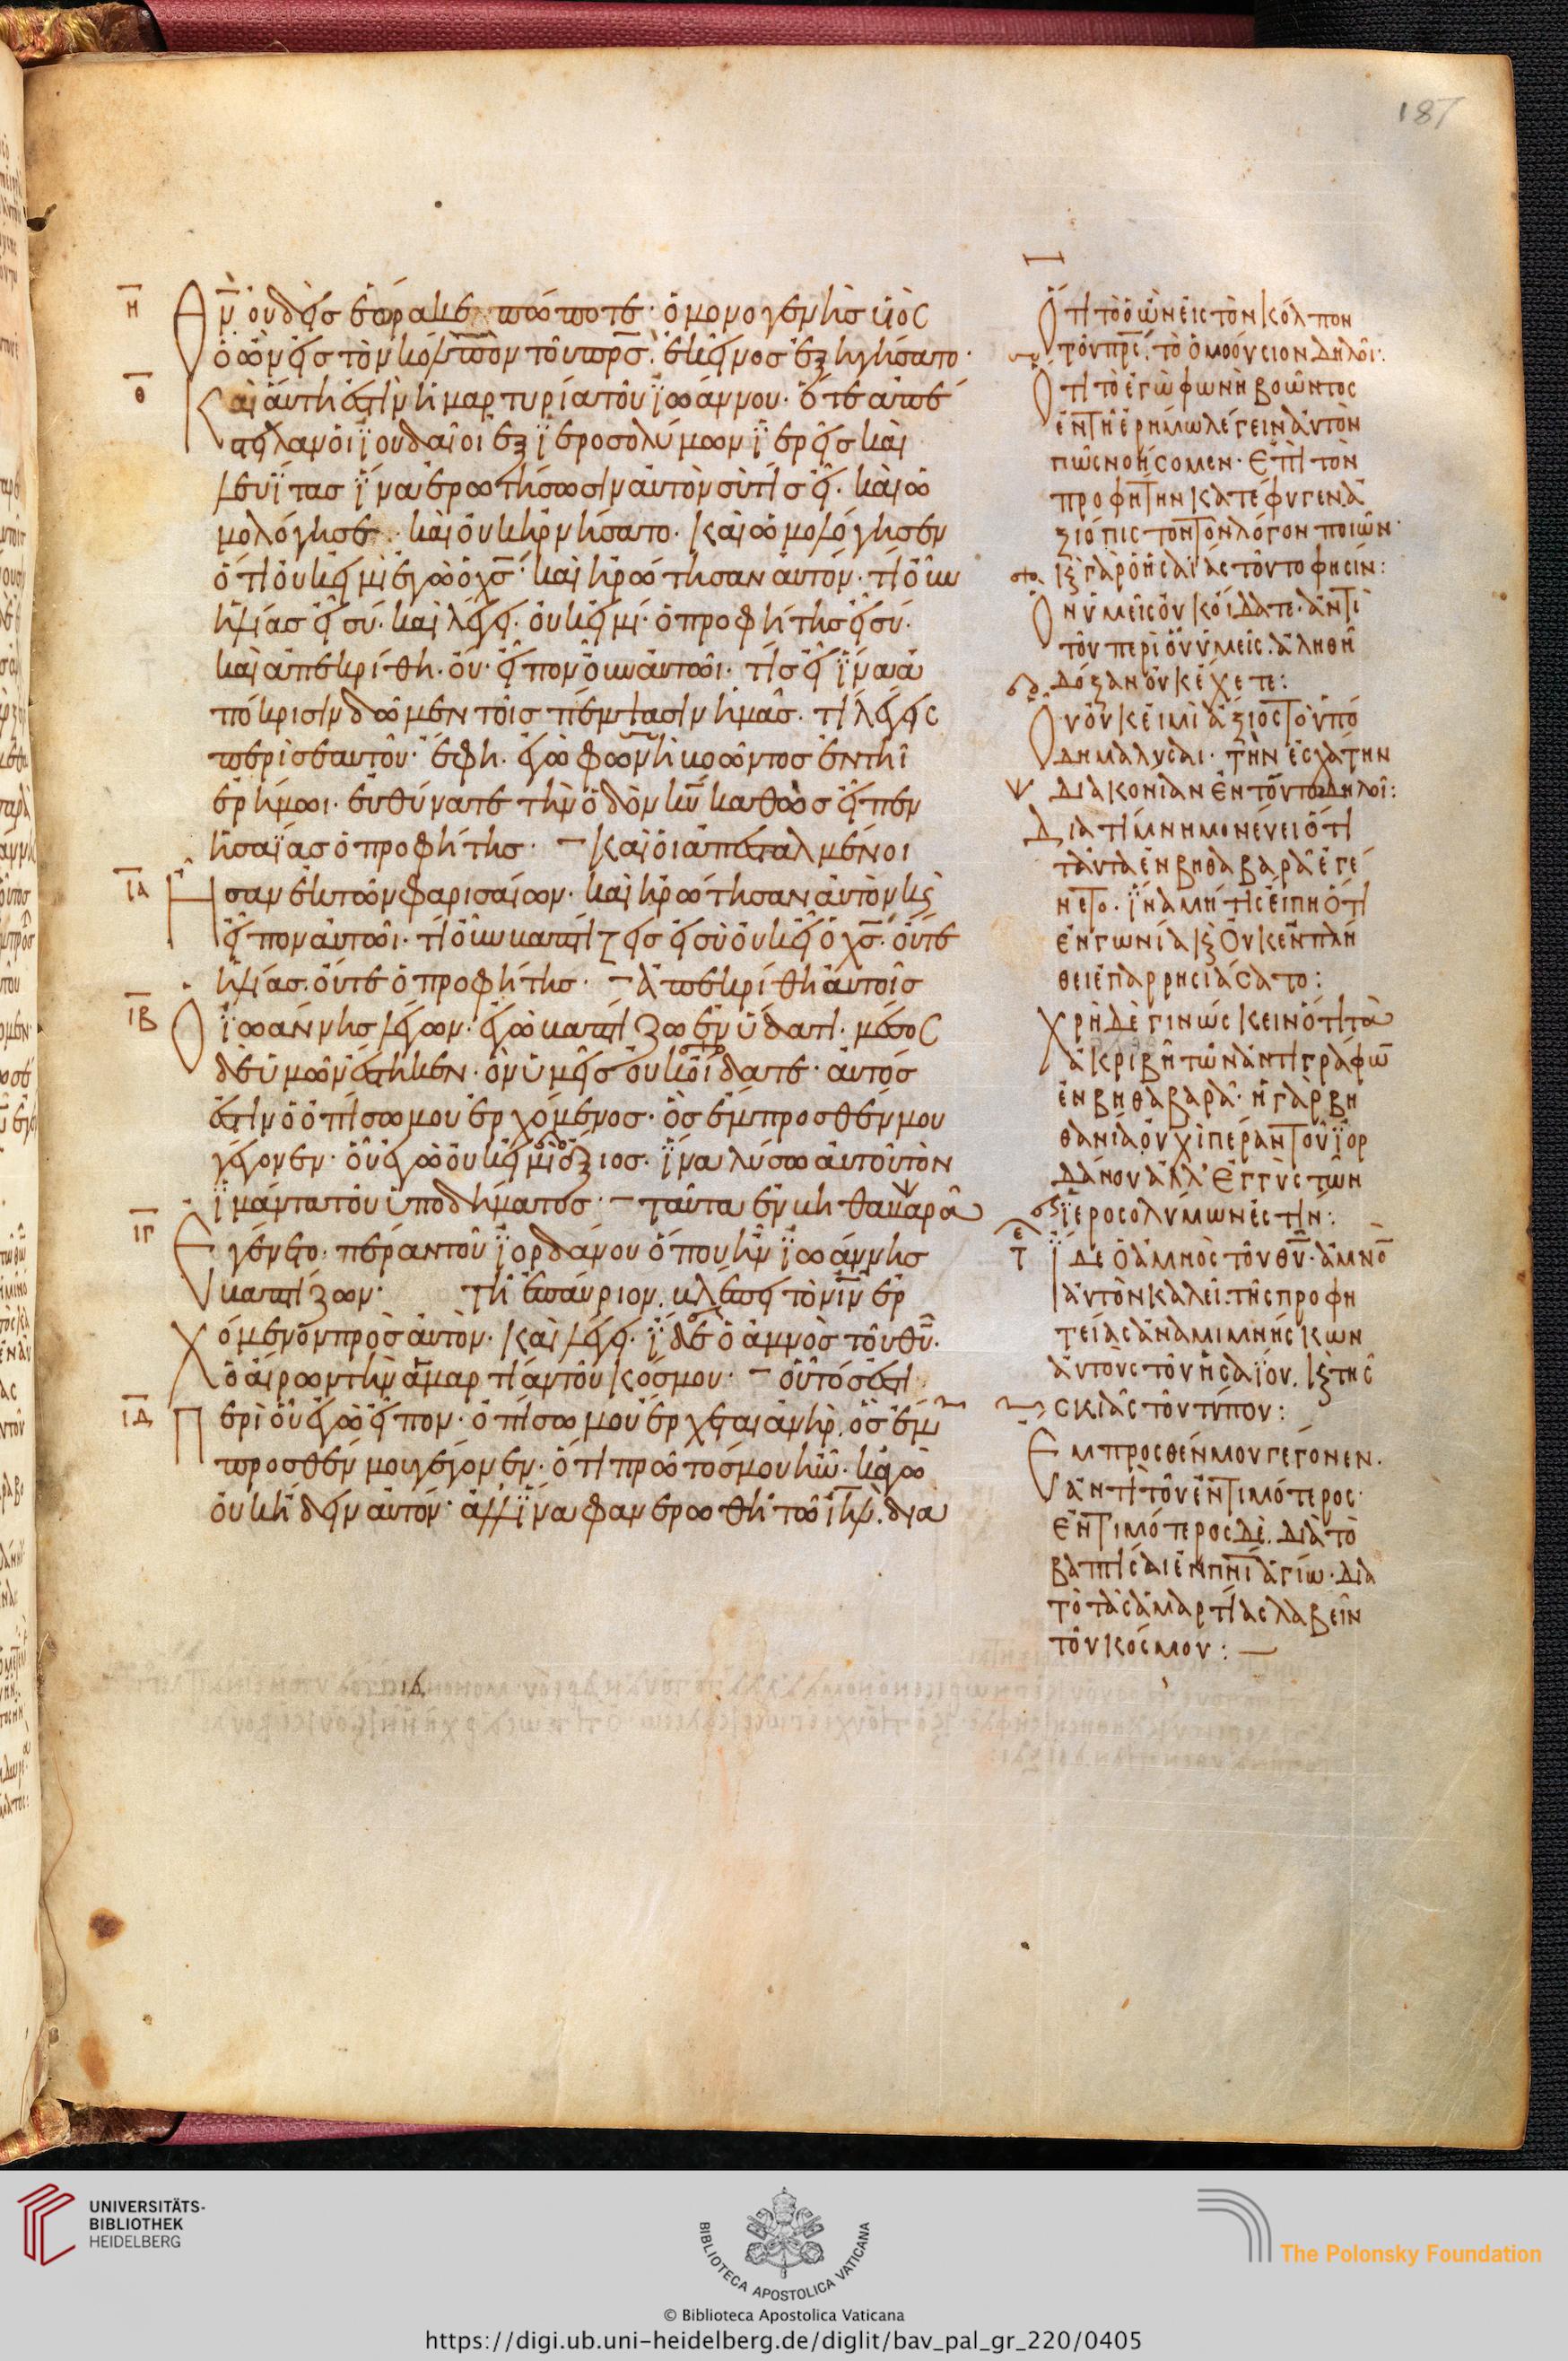 187
Η
Θν̅ ὀυδεὶς ἑώρακε πώποτε· ὁ μονογενὴσ υἱὸς
ὁ ὢν εἰσ τὸν κόλπον τοῦ πρ̅σ. ἐκεῖνοσ ἐξηγήσατο·
Θ
Καὶ ἅυτη ἐστὶν ἡ μαρτυρία τοῦ ϊωάννου· ὅτε ἀπέ
στειλαν ὁι ϊουδαῖοι ἐξ ϊεροσολύμων ϊερεῖσ καὶ
λευΐτασ ϊνα ἐρωτήσωσιν ἀυτὸν σὺ τίσ εἶ· καὶ ὡ
μολόγησε· καὶ ὀυκ ἠρνήσατο· καὶ ὡμολόγησεν
ὅτι ὀυκ εἰμὶ ἐγὼ ὁ χσ̅· καὶ ἠρώτησαν ἀυτόν· τί ὀῦν
ἠλίασ εἶ σύ· καὶ λέγει· ὀυκ εἰμί· ὁ προφήτησ εἶ σύ·
καὶ ἀπεκρίθη· ὀύ· εἶπον ὀῦν ἀυτῶι· τίσ εἶ ϊνα ἀ
πόκρισιν δῶμεν τοῖσ πέμψασιν ἡμᾶσ· τί λέγεις
περὶ σεαυτοῦ· ἔφη· ἐγὼ φωνὴ βοῶντοσ ἐν τῆι
ἐρήμωι· ἐυθύνατε τὴν ὁδὸν κυ̅ καθὼσ εἶπεν
ἡσαΐασ ὁ προφήτησ· – Καὶ ὁι ἀπεσταλμένοι
ΙΑ
Ησαν ἐκ τῶν φαρισαίων· καὶ ἠρώτησαν ἀυτὸν κς
εἶπον ἀυτῶι· τί ὀῦν βαπτίζεισ εἰ σὺ ὀυκ εἶ ὁ χσ̅· ὄυτε
ἠλίασ. ὄυτε ὁ προφήτησ· – Ἀπεκρίθη ἀυτοῖσ
ΙΒ
Ὁ ϊωάννησ λέγων· ἐγὼ βαπτίζω ἐν ὕδατι· μέσος
δὲ ὑμῶν ἕστηκεν· ὃν ὑμεῖσ ὀυκ ὀίδατε· ἀυτόσ
ἐστιν ὁ ὀπίσω μου ἐρχόμενοσ· ὃσ ἔμπροσθέν μου
γέγονεν· ὁῦ ἐγὼ ὀυκ εἰμὶ ἄξιοσ· ϊνα λύσω ἀυτοῦ τὸν
ϊμάντα τοῦ ὑποδήματοσ· – ταῦτα ἐν βηθαβαρᾶ
ΙΓ
Εγένετο· πέραν τοῦ ϊορδάνου ὅπου ἦν ϊωάννησ
βαπτίζων· Τῆ ἐπάυριον. βλέπει τὸν ιν̅ ἐρ
χόμενον πρὸσ ἀυτον· καὶ λέγει· ϊδε ὁ ἀμνὸσ τοῦ θυ̅·
ὁ ἀίρων τὴν ἁμαρτίαν τοῦ κόσμου· – ὁῦτόσ ἐστι
ΙΔ
Περὶ ὁῦ ἐγὼ εἶπον· ὀπίσω μου ἔρχεται ἀνὴρ. ὃσ ἔμ
προσθέν μου γέγονεν· ὅτι πρῶτόσ μου ἦν· κἀγὼ
ὀυκ ἤδειν ἀυτόν· ἀλλ ϊνα φανερωθῆ τῶ ιηλ. δια
Ὅτι τὸ ὁ ὢν ἐις τὸν κόλπον
τοῦ πρς̅. τὸ ὁμοούσιον δηλοῖ:
Ὅτι τὸ ἐγὼ φωνὴ βοῶντος
ἐν τῆ ἐρήμω λέγειν ἀυτὸν
πῶς νοήσομεν· ἐπὶ τὸν
προφήτην κατέφυγεν ἀ
ξιόπιστον τὸν λόγον ποιῶν·
κς γὰρ ὁ ἡσαίας τοῦτο φησιν:
Ὃν ὑμεῖς ὀυκ ὀίδατε· ἀντὶ
τοῦ περὶ ὁῦ ὑμεῖς. ἀληθῆ
δόξαν ὀυκ ἔχετε:
Ὃυ ὀυκ ἐιμὶ ἄξιος τὸ ὑπό
δημα λῦσαι· τὴν ἐσχάτην
διακονίαν ἐν τούτω δηλοῖ:
Διατί μνημονέυει ὅτι
ταῦτα ἐν βηθαβαρᾶ ἐγέ
νετο· ϊνα μή τις ἐιπη ὅτι
ἐν γωνία κς ὀυκ ἐν πλή
θει ἐπαρρησιάσατο:
Χρὴ δὲ γινώσκειν ὅτι τὰ
ἀκριβῆ τῶν ἀντιγράφω̅
ἐν βηθαβαρᾶ· ἡ γὰρ βη
θανία ὀυχὶ πέραν τοῦ ϊορ
δάνου ἀλλ' ἐγγὺς τῶν
ϊεροσολύμων ἐστίν:
Ϊδε ὁ ἀμνὸς τοῦ θυ̅· ἀμνο̅
ἀυτὸν καλεῖ. τῆς προφη
τείας ἀναμιμνήσκων
ἀυτοὺς τοῦ ἡσαΐου. κς τῆς
σκιᾶς τοῦ τύπου:
Ἔμπροσθέν μου γέγονεν.
ἀντὶ τοῦ ἐντιμότερος·
ἐντιμότερος δὲ. διὰ τὸ
βαπτίσαι ἐν πνι̅ ἁγίω· δια
τὸ τὰς ἁμαρτίας λαβεῖν
τοῦ κόσμου: –
UNIVERSITÄTS-
BIBLIOTHEK
HEIDELBERG
BIBLIOTECA APOSTOLICA VATICANA
The Polonsky Foundation
© Biblioteca Apostolica Vaticana
https://digi.ub.uni-heidelberg.de/diglit/bav_pal_gr_220/0405